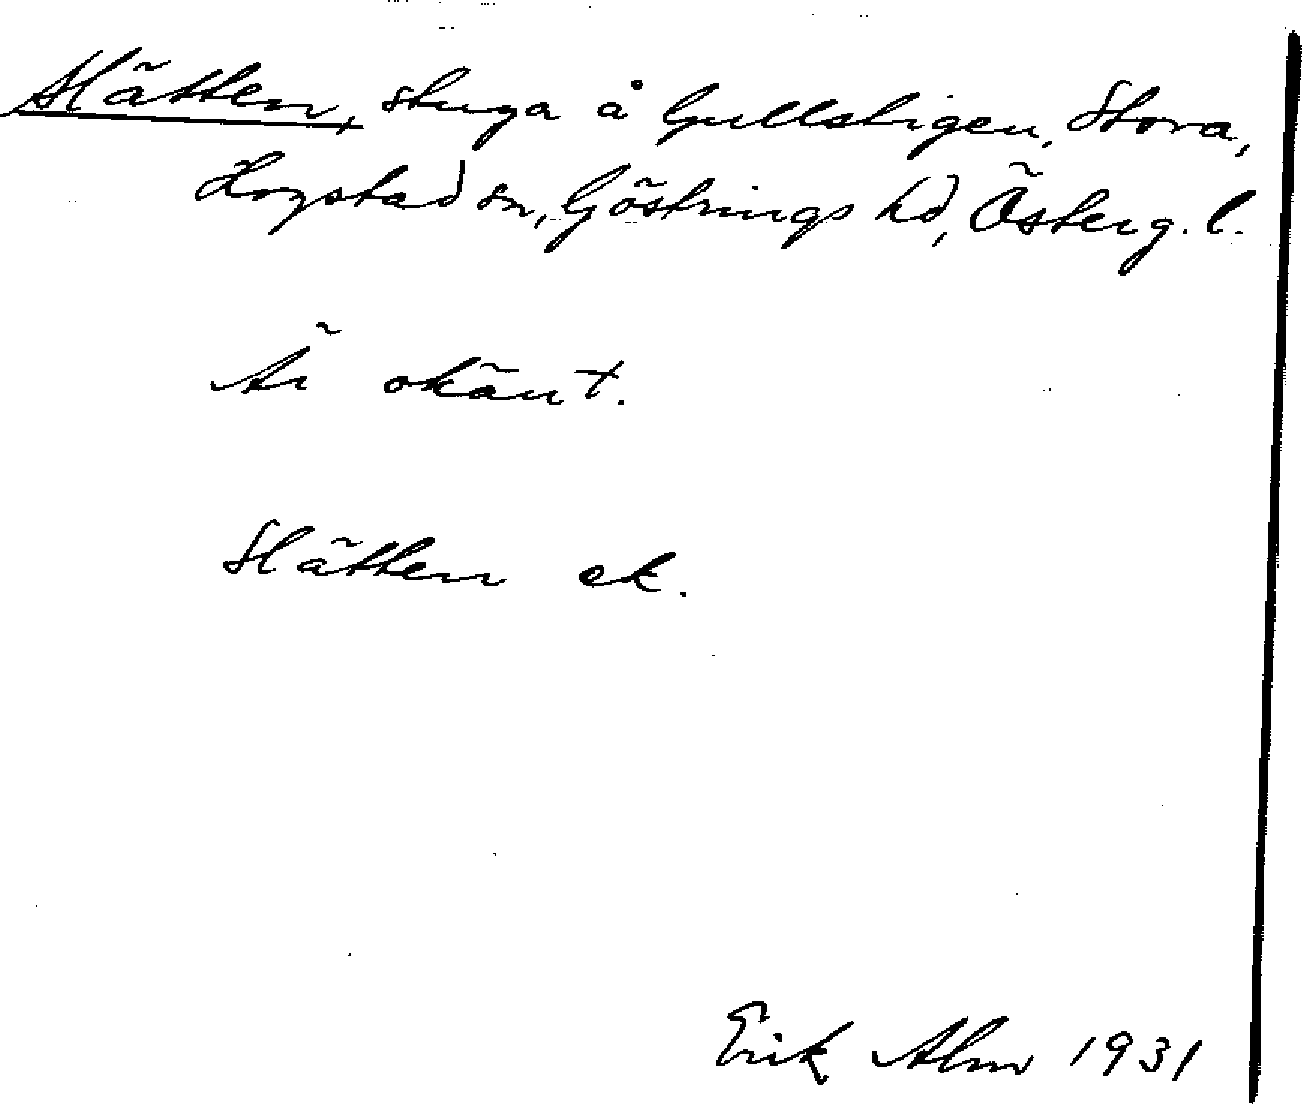 Slätten, stuga å Gullstigen, Stora,
Hogstad sn, Göstrings hd, Österg. l.
Är okänt.
Slätten ek.
Erik Alm 1931